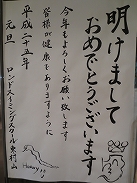 明けまして
おめでとうございます
今年もよろしくお願い致します
皆様が健康でありますように
平成二十五年
元旦
ロンドスイミングスクール東村山
Happy